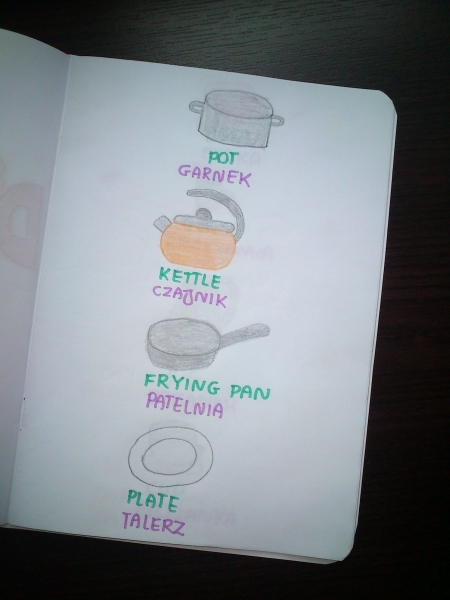 POT
GARNEK
KETTLE
CZAJNIK
FRYING PAN
PATELNIA
PLATE
TALERZ